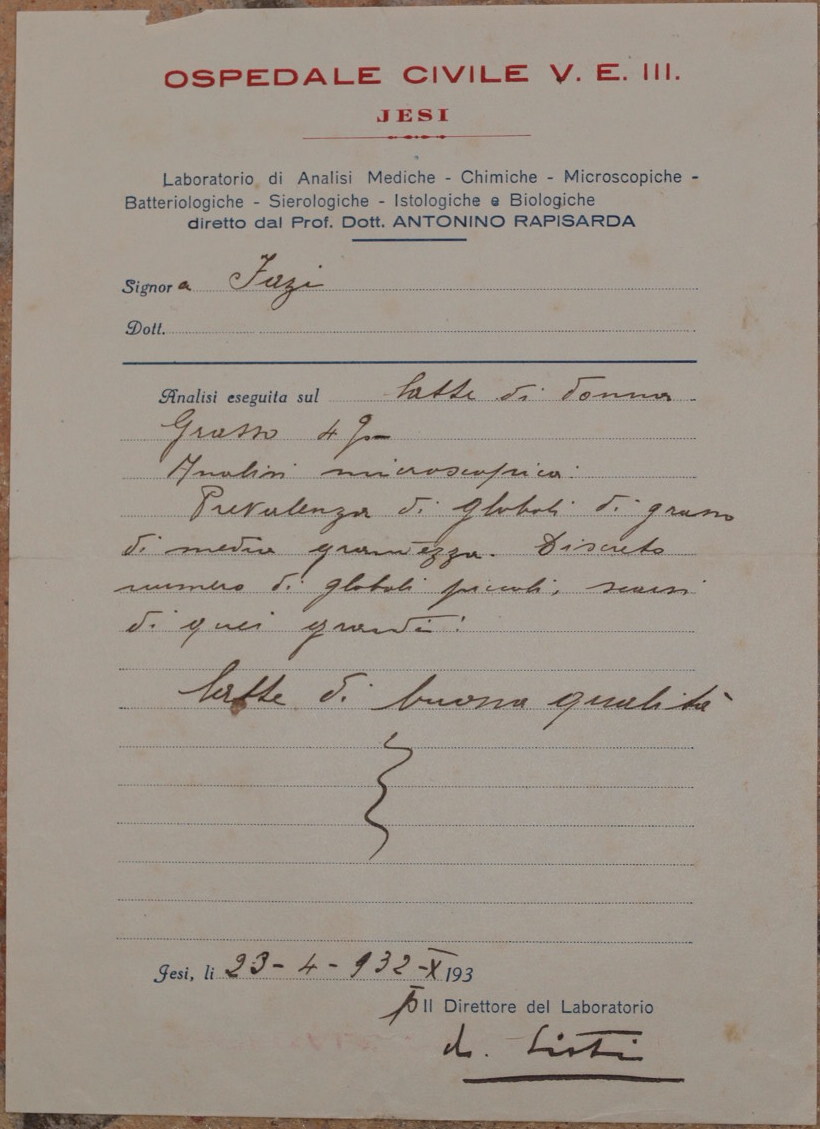 OSPEDALE CIVILE V. E. III.
JESI
Laboratorio di Analisi Mediche - Chimiche - Microscopiche -
Batteriologiche - Sierologiche - Istologiche e Biologiche
diretto dal Prof. Dott. ANTONINO RAPISARDA
Signora Fazi
Dott.
Analisi eseguita sul latte di donna
Grasso 4
Analisi microscopica:
Prevalenza di globoli di grasso
di media grandezza. Discreto
numero di globoli piccoli, scarsi
di quei grandi.
Latte di buona qualità
Jesi, li 23-4-932-X 193
p Il Direttore del Laboratorio
dr.